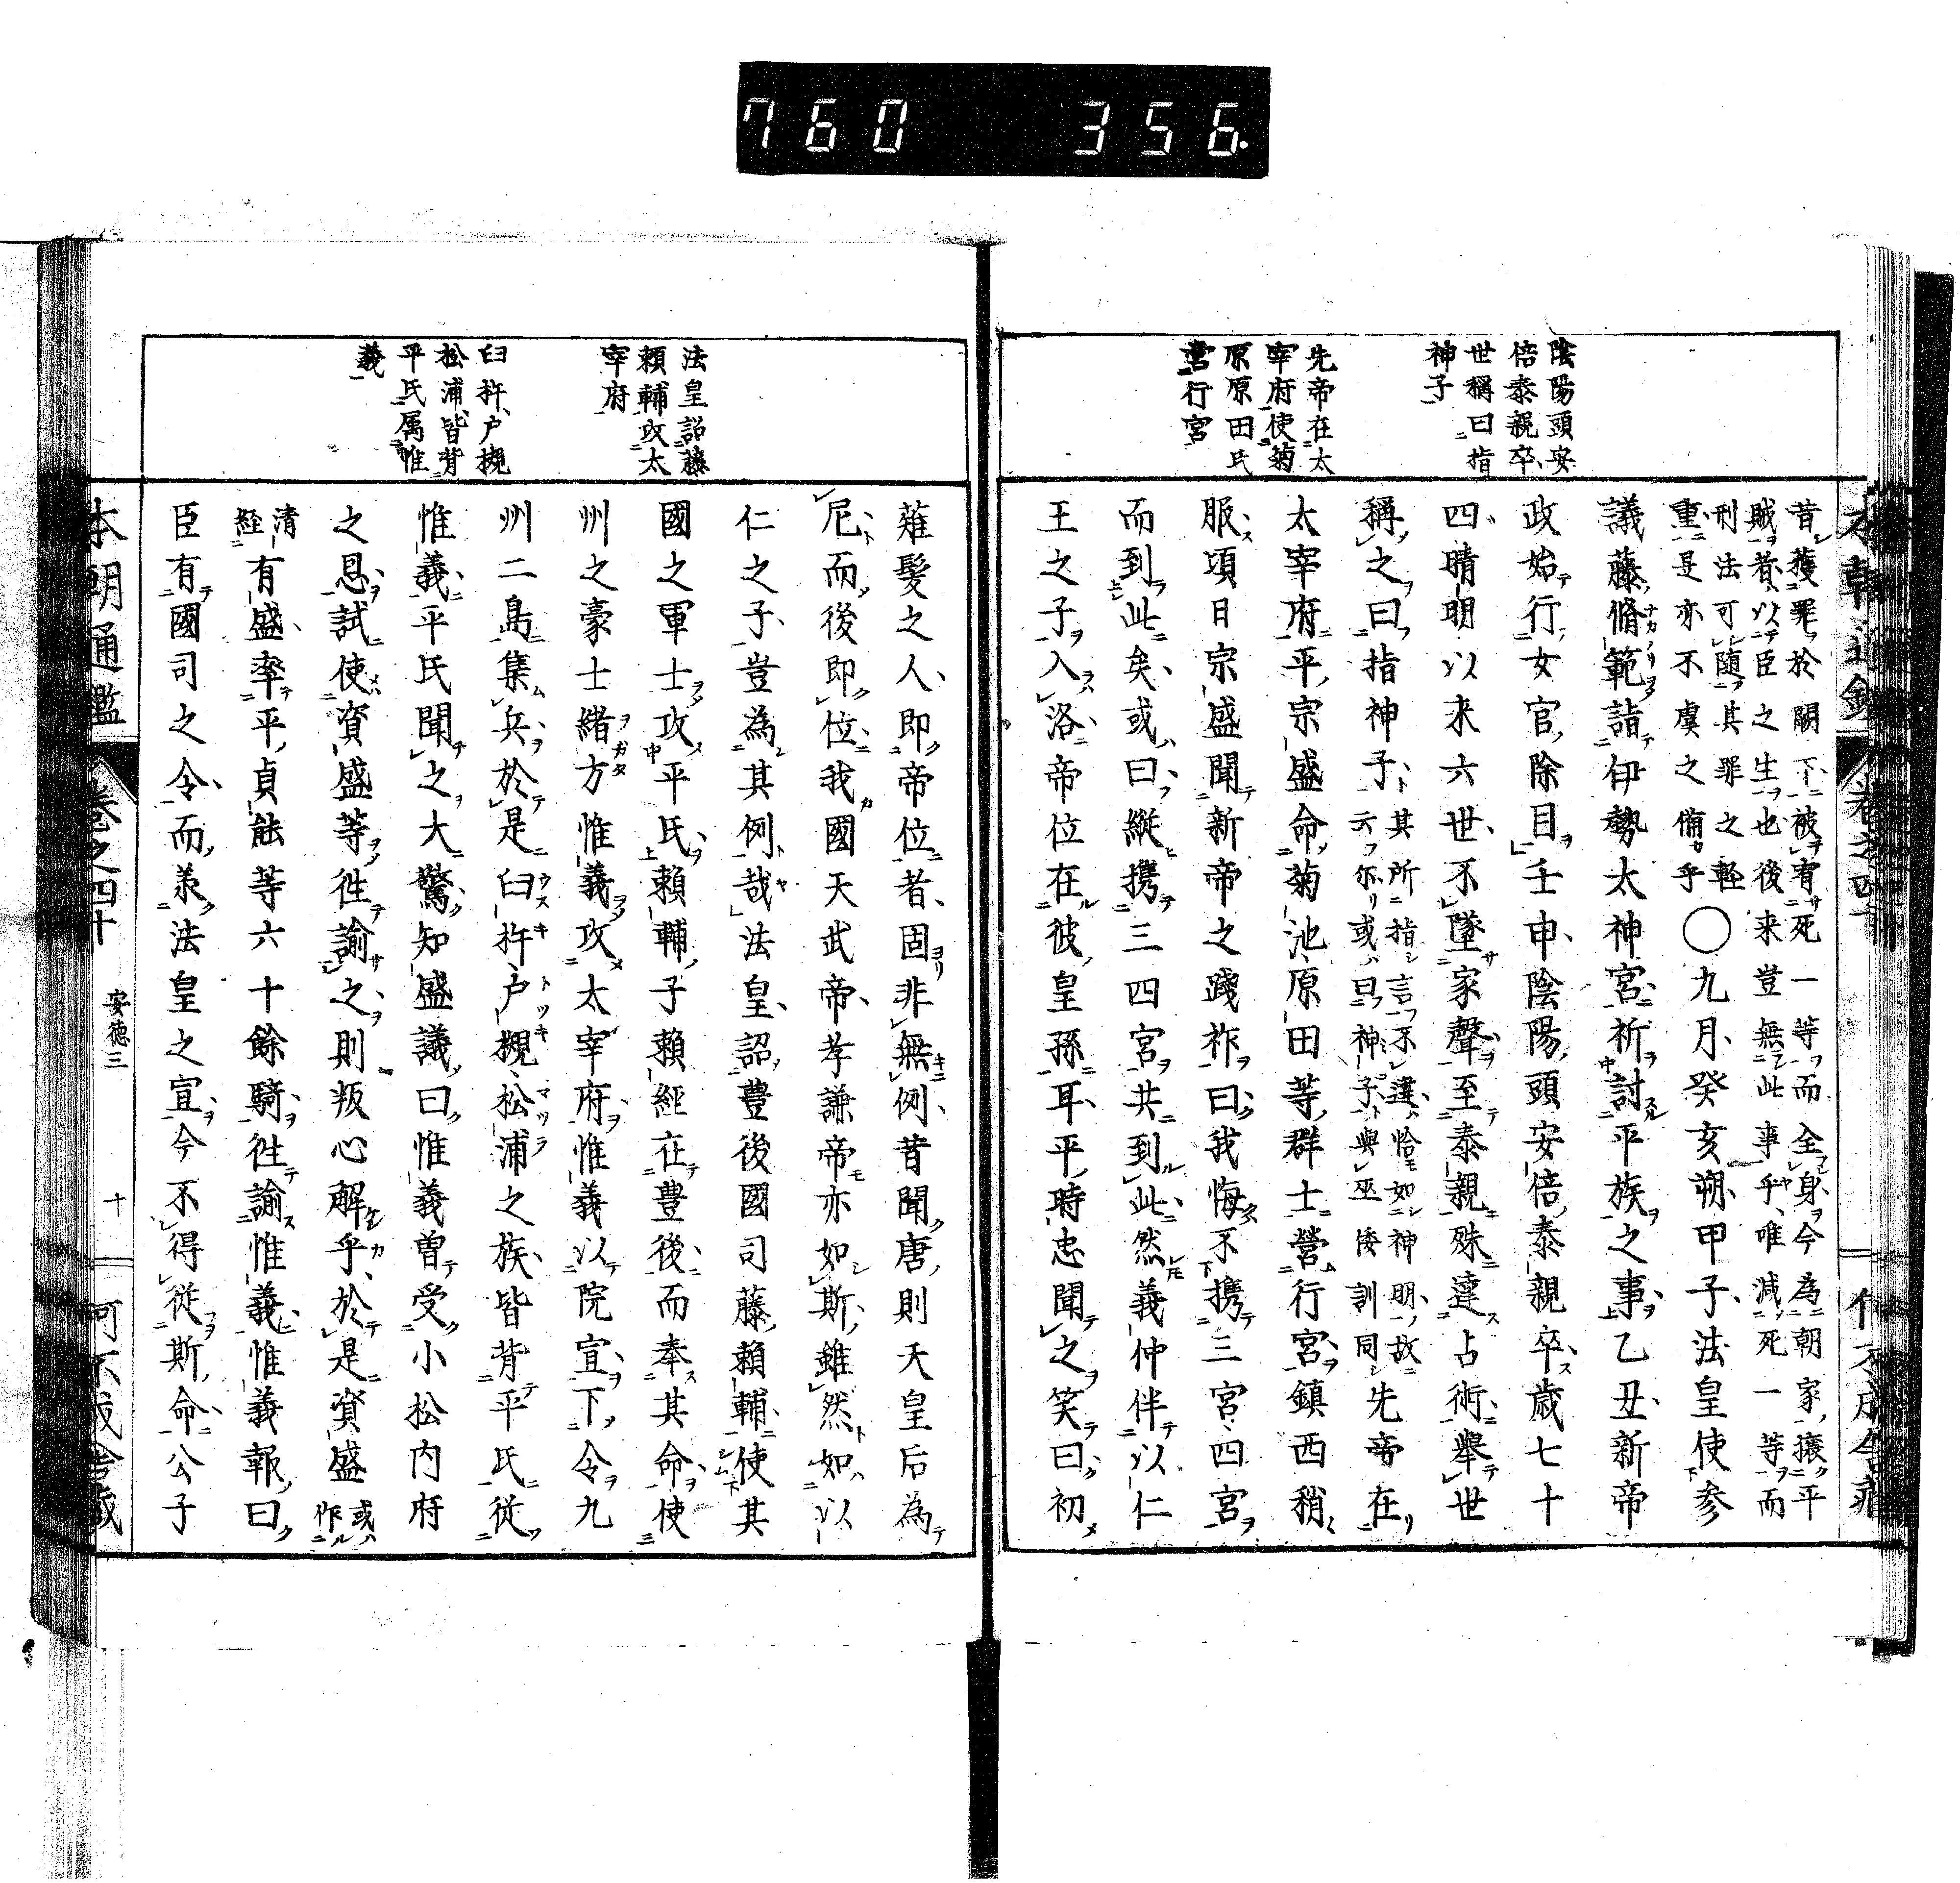 760 356.
陰陽頭安
倍泰親卒
世稱曰指
神子
先帝在太
宰府使菊
原原田氏
營行宮
昔獲罪於闕下被宥死一等而全身今為朝家攘平
賊者以臣之生也後来豈無此事乎唯減死一等而
刑法可随其罪之輕
重是亦不虞之備乎〇九月癸亥朔甲子法皇使参
議藤脩範詣伊勢太神宮祈討平族之事乙丑新帝
政始行女官除目壬申陰陽頭安倍泰親卒歳七十
四晴明以来六世不墜家聲至泰親殊達占術舉世
稱之曰指神子其所指言不違恰如神明故
云尓或曰神子與巫倭訓同先帝在
太宰府平宗盛命菊池原田等群士營行宮鎮西稍
服頃日宗盛聞新帝之踐祚曰我悔不携三宮四宮
而到此矣或曰縦携三四宮共到此然義仲伴以仁
王之子入洛帝位在彼皇孫耳平時忠聞之笑曰初
法皇詔藤
頼輔攻太
宰府
臼杵戸槻
松浦皆背
平氏属惟
義
薙髪之人即帝位者固非無例昔聞唐則天皇后為
尼而後即位我國天武帝孝謙帝亦如斯雖然如以
仁之子豈為其例哉法皇詔豊後國司藤頼輔使其
國之軍士攻平氏頼輔子頼經在豊後而奉其命使
州之豪士緒方惟義攻太宰府惟義以院宣下令九
州二島集兵於是臼杵戸槻松浦之族皆背平氏従
惟義平氏聞之大驚知盛議曰惟義曽受小松内府
之恩試使資盛等徃諭之則叛心解乎於是資盛或作
清經有盛率平貞能等六十餘騎徃諭惟義惟義報曰
臣有國司之令而兼法皇之宣今不得従斯命公子
本朝通鑑
卷之四十
安徳三
十